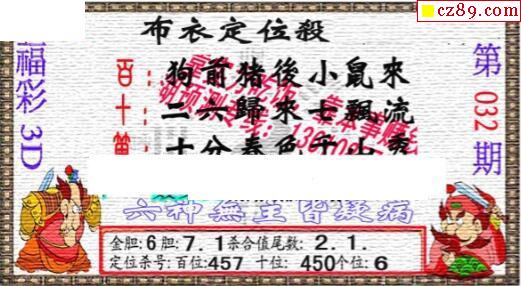 cz89.com
布衣定位殺
福彩3D
第032期
百: 狗前豬後小鼠來
十: 二六歸來七飄流
十分春色千山秀
六神無主皆疑病
金胆:6胆:7.1杀合值尾数:2.1.
定位杀号:百位:457 十位:450个位:6